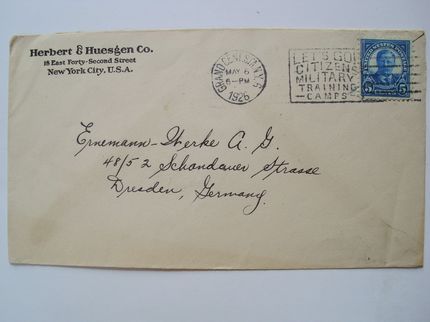 Herbert & Huesgen Co.
18 East Forty-Second Street
New York City, U.S.A.
GRAND CENTRAL STA. N.Y.
MAY 6
6-PM
1926
LET'S GO!
CITIZENS
MILITARY
TRAINING
CAMPS
UNITED STATES POSTAGE
5 5
Ernemann-Werke A. G.
48/52 Schandauer Strasse
Dresden, Germany.